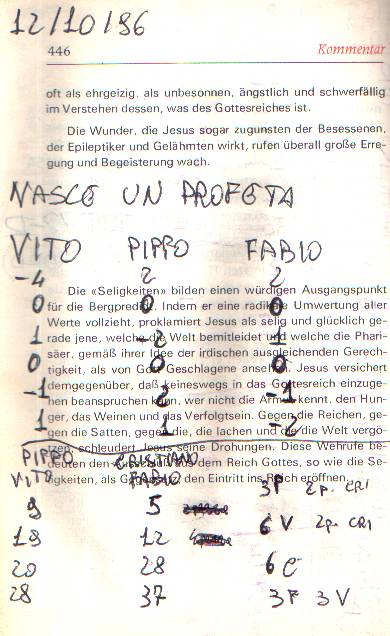 12/10/96
446 Kommentar
oft als ehrgeizig, als unbesonnen, ängstlich und schwerfällig
im Verstehen dessen, was des Gottesreiches ist.
Die Wunder, die Jesus sogar zugunsten der Besessenen,
der Epileptiker und Gelähmten wirkt, rufen überall große Erre-
gung und Begeisterung wach.
NASCE UN PROFETA
VITO PIPPO FABIO
-4 2 2
Die «Seligkeiten» bilden einen würdigen Ausgangspunkt
0 0 0
für die Bergpredigt. Indem er eine radikale Umwertung aller
Werte vollzieht, proklamiert Jesus als selig und glücklich ge-
1 -2 1
rade jene, welche die Welt bemitleidet und welche die Phari-
säer, gemäß ihrer Idee der irdischen ausgleichenden Gerech-
0 0 0
tigkeit, als von Gott Geschlagene ansehen. Jesus versichert
-1 2 -1
demgegenüber, daß keineswegs in das Gottesreich einzuge-
hen beanspruchen kann, wer nicht die Armut kennt, den Hun-
1 1 -2
ger, das Weinen und das Verfolgtsein. Gegen die Reichen, ge-
gen die Satten, gegen die, die lachen und die die Welt vergö-
tzen, schleudert Jesus seine Drohungen. Diese Wehrufe be-
PIPPO CRISTIANO
deuten den Ausschluß aus dem Reich Gottes, so wie die Se-
VITO FABIO
ligkeiten, als Gegensatz, den Eintritt ins Reich eröffnen.
3P 2p. CRI
9 5
6 V 2p. CRI
18 12
20 28 6 C
28 37 3F 3V